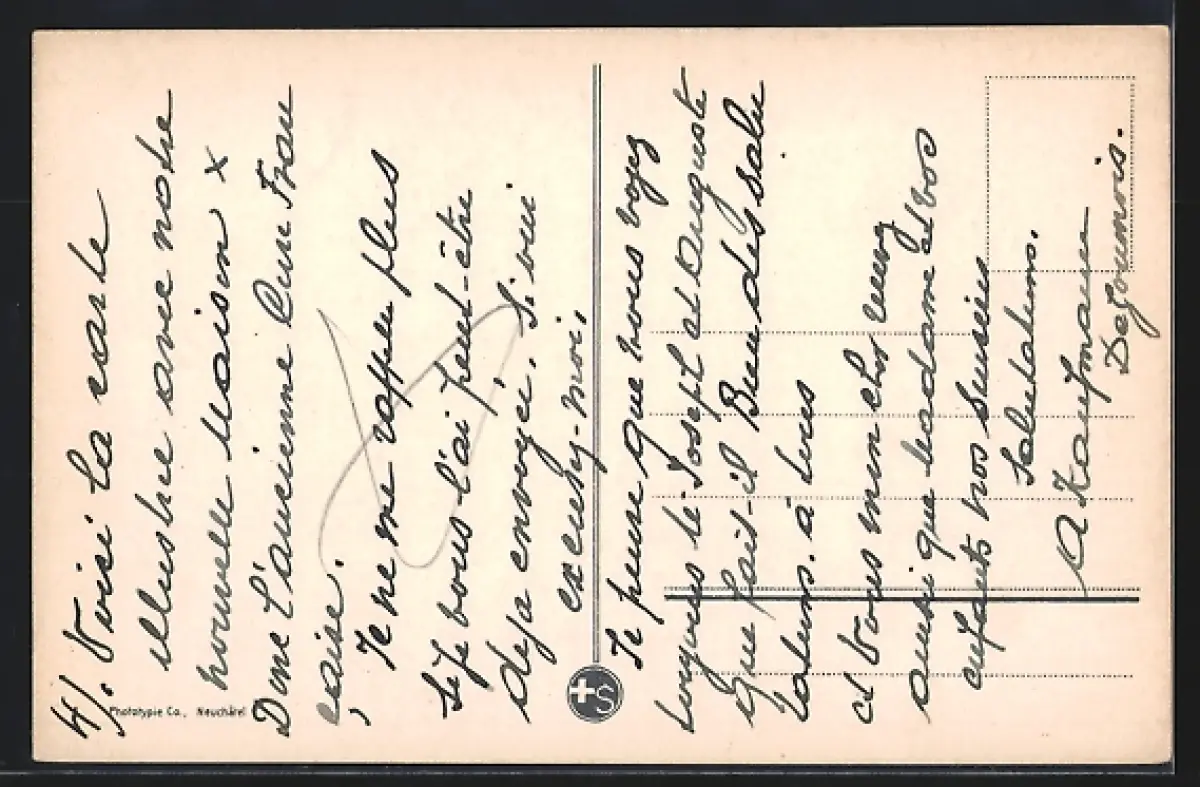 4/. Voici la carte
illustrée avec notre
nouvelle Maison X
Donc l'ancienne Cure Fran
çaise.
Je ne me rappelle plus
si je vous l'ai peut-être
deja envoyé. Si oui
excusez-moi.
Je pense que vous voyez
toujours le Joseph et Auguste
Que fait-il Bien des salu
tations. à tous
et vous mon cher
ainsi que Madame et vos
enfants nos sincères
salutations.
A Kaufmann
Phototypie Co., Neuchâtel
S